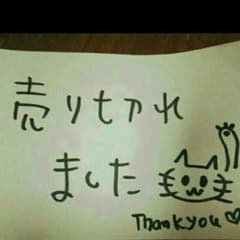 売り切れ
ました
Thank you♡